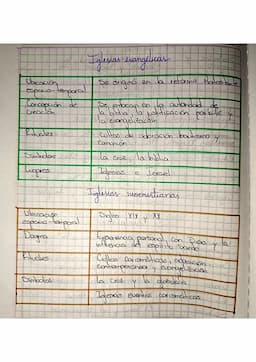 Iglesias evangélicas
Ubicación espacio-temporal
Se originó en la reforma
Concepción de creación
Se enfocan en la autoridad de
la biblia, la justificación por la fe y
la evangelización
Rituales
Cultos de adoración bautismo y
comunión
Símbolos
la cruz, la biblia
Lugares
Iglesias o
Iglesias
Ubicación
espacio-temporal
Siglos XIX y XX
Dogma
Experiencia personal con Dios y la
influencia del espíritu santo
Rituales
Cultos carismáticos, adoración
contemporánea y evangelización
Símbolos
La cruz y la
Iglesias eventos carismáticos